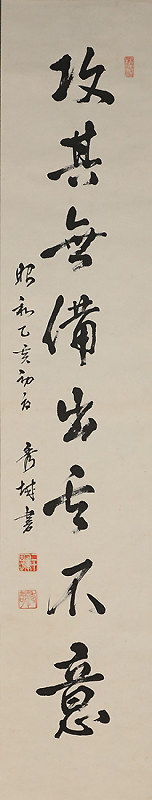 攻其無備出其不意
昭和乙亥初夏 秀樹書